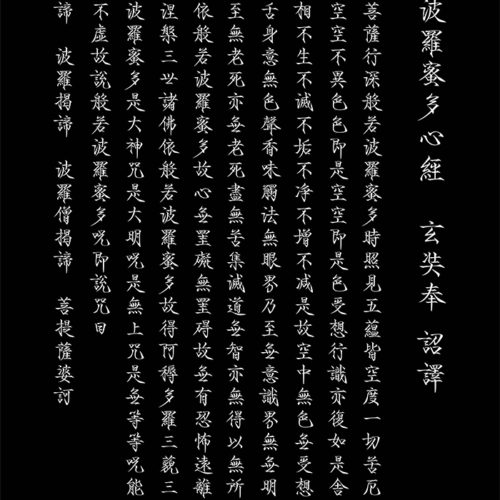 波羅蜜多心經 玄奘奉 詔譯
菩薩行深般若波羅蜜多時照見五蘊皆空度一切苦厄
空空不異色色即是空空即是色受想行識亦復如是舍
相不生不滅不垢不净不增不減是故空中無色無受想
舌身意無色聲香味觸法無眼界乃至無意識界無無明
至無老死亦無老死盡無苦集滅道無智亦無得以無所
依般若波羅蜜多故心無罣礙無罣碍故無有恐怖遠離
涅槃三世諸佛依般若波羅蜜多故得阿耨多羅三藐三
波羅蜜多是大神咒是大明呪是無上咒是無等等呪能
不虛故說般若波羅蜜多呪即說咒曰
諦 波羅揭諦 波羅僧揭諦 菩提薩婆訶